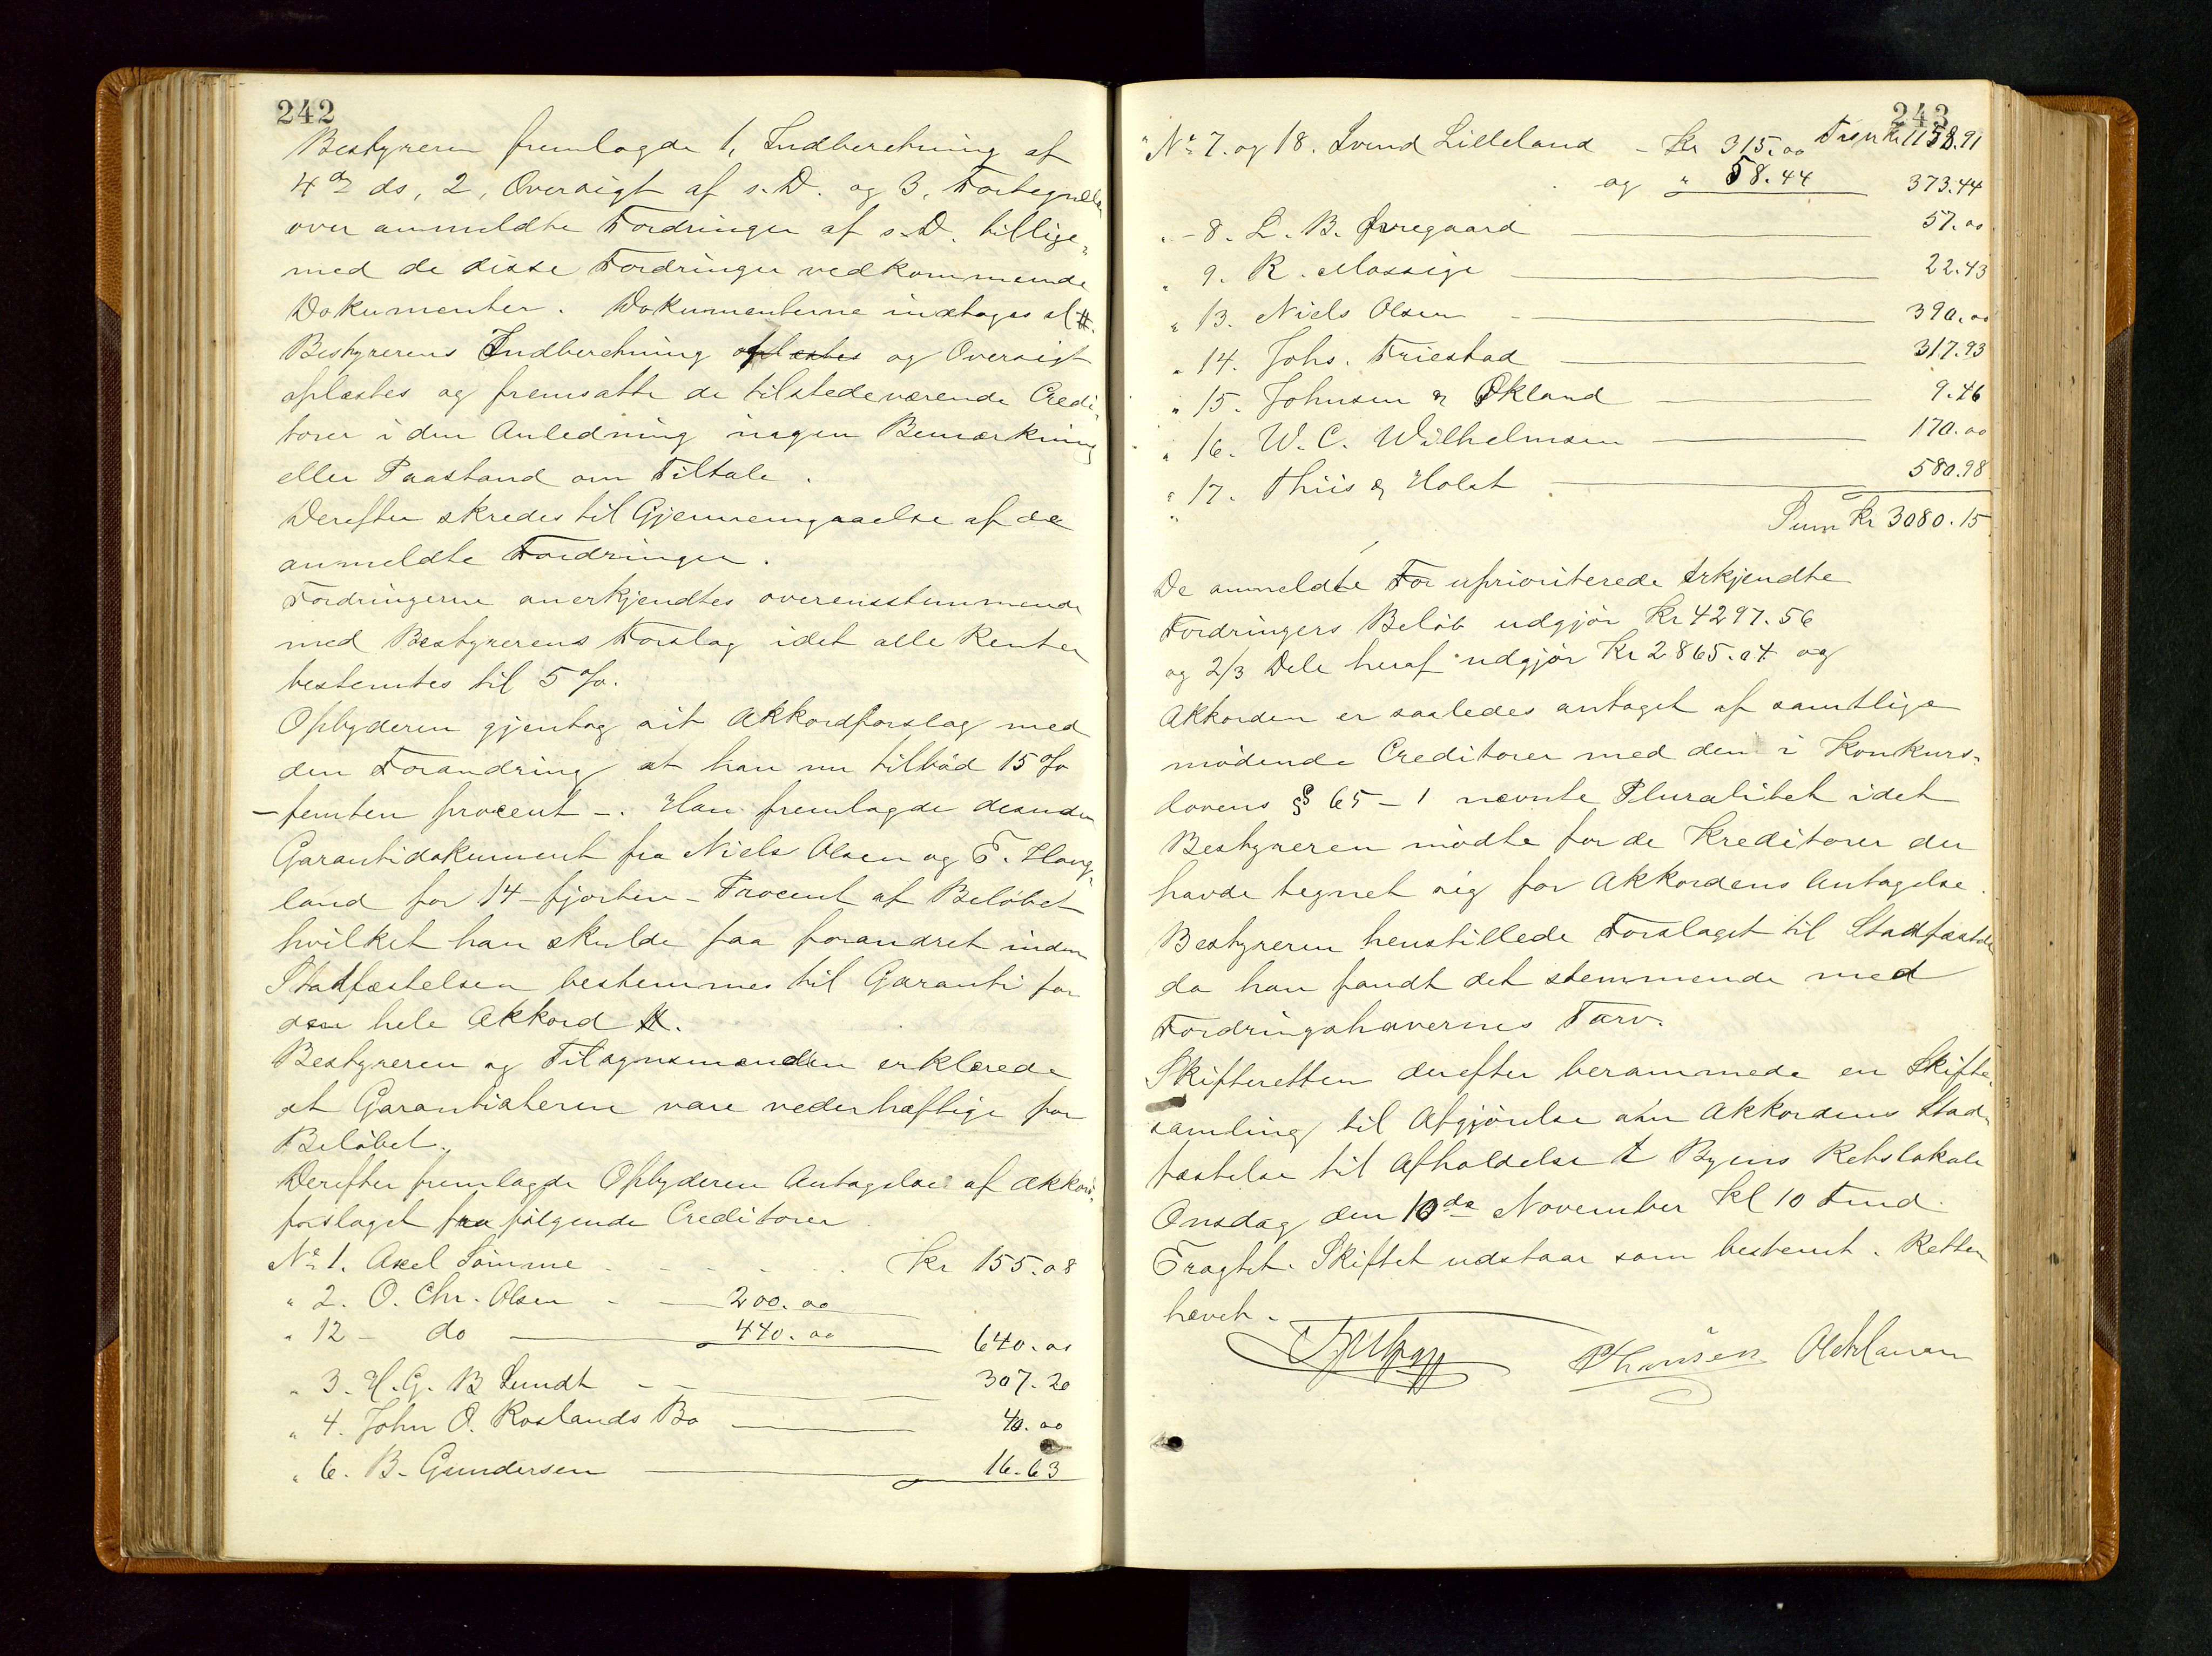 242
Bestyreren fremlagde 1, Indberetning af
4de ds, 2, Oversigt af s. D. og 3, Fortegnelse
over anmeldte Fordringer af s. D. tillige-
med de disse Fordringer vedkommende
Dokumenter. Dokumenterne indtages
Bestyrerens Indberetning oplæstes og Oversigt
oplæstes og fremsatte de tilstedeværende Credi-
torer i den Anledning ingen Bemærkning
eller Paastand om Tiltale.
Derefter skredes til Gjennemgaaelse af de
anmeldte Fordringer.
Fordringerne anerkjendtes overensstemmende
med Bestyrerens Forslag idet alle Renter
bestemtes til 5 %.
Opbyderen gjentog sit Akkordforslag med
den Forandring at han nu tilbød 15 %
- femten procent -. Han fremlagde desuden
Garantidokument fra Niels Olsen og E. Haug-
land for 14 - fjorten - Procent af Beløbet
hvilket han skulde faa forandret inden
Stadfæstelsen bestemmes til Garanti for
den hele Akkord.
Bestyreren og Tilsynsmanden erklærede
at Garantisterne vare vederhæftige for
Beløbet.
Derefter fremlagde Opbyderen Antagelse af Akkord-
forslaget fra følgende Creditorer
No 1. Axel Sømme - - - - - Kr 155.08
" 2. O. Chr. Olsen - - 200.00
" 12 - do 440.00 640.00
" 3. H. G. B Sundt - - 307.20
" 4. John O. Roslands Bo 40.00
" 6. B. Gundersen 16.63
243
" No 7. og 18. Svend Lilleland - Kr 315.00 Trsp Kr 1158.91
og " 58.44 373.44
" - 8. L. B. Øvregaard 57.00
" 9. R. Mossige 22.43
" 13. Niels Olsen - 390.00
" 14. Johs. Friestad 317.93
" 15. Johnsen & Økland 9.46
" 16. W. C. Wilhelmsen 170.00
" 17. Thiis & Holst 580.98
Sum Kr 3080.15
De anmeldte For uprioriterede Erkjendte
Fordringers Beløb udgjør Kr 4297.56
og 2/3 Dele heraf udgjør Kr 2865.04 og
Akkorden er saaledes antaget af samtlige
mødende Creditorer med den i Konkurs-
lovens § 65 - 1 nævnte Pluralitet idet
Bestyreren mødte for de Kreditorer der
havde tegnet sig for Akkordens Antagelse.
Bestyreren henstillede Forslaget til Stadfæstelse
da han fandt det stemmende med
Fordringshavernes Tarv.
Skifteretten derefter berammede en Skifte-
samling til Afgjørelse om Akkordens Stad-
fæstelse til Afholdelse i Byens Retslokale
Onsdag den 10de November Kl 10 Fmd.
Fragtet. Skiftet udstaar som bestemt. Retten
hævet.